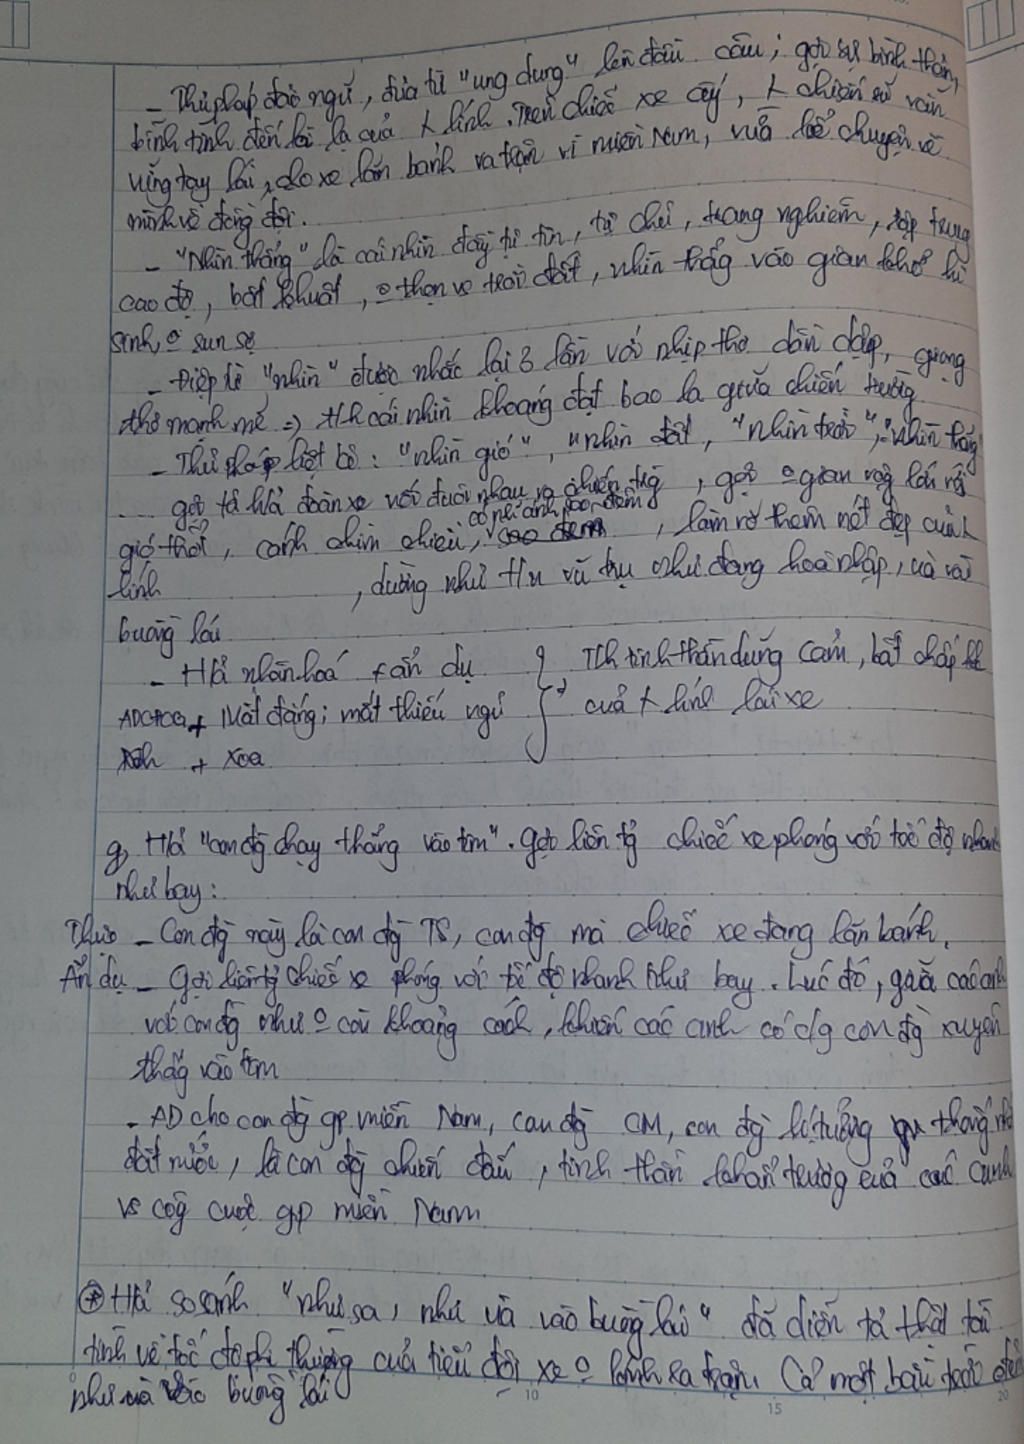 - Thủ pháp đảo ngữ, đưa từ "ung dung" lên đầu câu; gợi sự bình thản,
bình tĩnh đến kì lạ của lính. Trên chiếc xe ấy, chiến sĩ vẫn
vững tay lái, cho xe lăn bánh ra trận vì miền Nam, vừa kể chuyện về
mình về đồng đội.
- "Nhìn thẳng" là cái nhìn đầy tự tin, tự chủ, trang nghiêm, tập trung
cao độ, bất khuất, thẹn vs trời đất, nhìn thẳg vào gian khổ hi
sinh run sợ
- Điệp từ "nhìn" được nhắc lại 3 lần với nhịp thơ dồn dập, giọng
thơ mạnh mẽ => cái nhìn khoáng đạt bao la giữa chiến trường
- Thủ pháp liệt kê: "nhìn gió", "nhìn đất, "nhìn trời", "nhìn thẳng
.... gợi tả h/ả đoàn xe nối đuôi nhau ra chiến trg, gợi gian rộg lớn với
có h/ả ánh sao đêm
gió thổi, cánh chim chiều, , làm rõ thêm nét đẹp của
lính , dường như vũ trụ như đang hoà nhập, ùa vào
buồng lái
- H/ả nhân hoá + ẩn dụ
+ Mắt đắng: mắt thiếu ngủ tinh thần dũng cảm, bất chấp
+ xoa của lính lái xe
g, H/ả "con đg chạy thẳng vào tim". Gợi liên tg chiếc xe phóng với tốc độ nhanh
như bay:
Thực - Con đg này là con đg TS, con đg mà chiếc xe đang lăn bánh.
Ẩn dụ - Gợi liên tg chiếc xe phóng với tốc độ nhanh như bay. Lúc đó, giữa các anh
với con đg như còn khoảng cách, khiến các anh có c/g con đg xuyên
thẳg vào tim
- AD cho con đg gp miền Nam, con đg CM, con đg lí tưởng thống nhất
đất nước, là con đg chiến đấu, tinh thần khẩn trương của các anh
vs côg cuộc gp miền Nam
* H/ả so sánh "như sa, như ùa vào buồng lái" đã diễn tả thật tài
tình về tốc độ phi thường của tiểu đội xe kính ra trận. Cả một bầu trời đêm
như ùa vào buồng lái